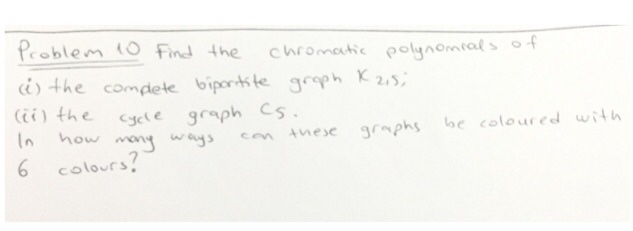 Problem 10 Find the chromatic polynomials of
(i) the complete bipartite graph K2,5;
(ii) the cycle graph C5.
In how many ways can these graphs be coloured with
6 colours?